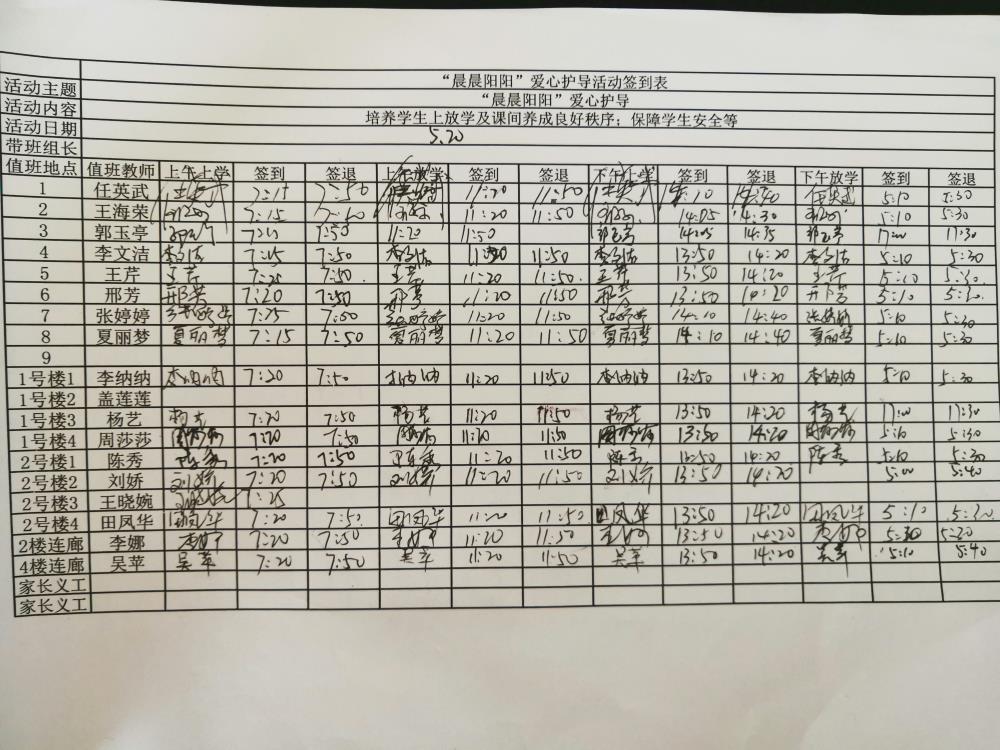 活动主题 “晨晨阳阳”爱心护导活动签到表
活动内容 “晨晨阳阳”爱心护导
活动日期 培养学生上放学及课间养成良好秩序；保障学生安全等
带班组长 5.20
值班地点 值班教师 上午上学 签到 签退 上午放学 签到 签退 下午上学 签到 签退 下午放学 签到 签退
1 任英武 7:15 7:50 11:20 11:50 14:10 14:40 任英武 5:10 5:30
2 王海荣 7:15 11:20 11:50 14:05 14:30 5:10 5:30
3 郭玉亭 7:50 11:20 11:50 郭玉亭 14:05 14:35 郭玉亭 17:00 17:30
4 李文洁 李文洁 7:25 7:50 李文洁 11:50 李文洁 13:50 14:20 李文洁 5:10 5:30
5 王芹 王芹 7:25 7:50 王芹 11:20 11:50 王芹 13:50 14:20 王芹 5:10 5:30
6 邢芳 邢芳 7:20 7:50 邢芳 11:20 11:50 邢芳 13:50 14:20 邢芳 5:10 5:30
7 张婷婷 张婷婷 7:25 7:50 张婷婷 11:20 11:50 张婷婷 14:10 14:40 张婷婷 5:10 5:30
8 夏丽梦 夏丽梦 7:15 7:50 夏丽梦 11:20 11:50 夏丽梦 14:10 14:40 夏丽梦 5:10 5:30
9
1号楼1 李纳纳 李纳纳 7:20 7:50 李纳纳 11:20 11:50 李纳纳 13:50 14:20 李纳纳 5:10 5:30
1号楼2 盖莲莲
1号楼3 杨艺 杨艺 7:20 7:50 杨艺 11:20 11:50 杨艺 13:50 14:20 杨艺 17:00 17:30
1号楼4 周莎莎 周莎莎 7:20 7:50 周莎莎 11:20 11:50 周莎莎 13:50 14:20 周莎莎 5:10 5:30
2号楼1 陈秀 陈秀 7:20 7:50 11:20 11:50 陈秀 13:50 14:20 陈秀 5:10 5:30
2号楼2 刘娇 刘娇 7:20 7:50 刘娇 11:20 11:50 刘娇 13:50 14:20 5:00 5:40
2号楼3 王晓婉 王晓婉 7:25
2号楼4 田凤华 田凤华 7:20 7:50 田凤华 11:20 11:50 田凤华 13:50 14:20 田凤华 5:10 5:30
2楼连廊 李娜 李娜 7:20 7:50 李娜 11:20 11:50 李娜 13:50 14:20 李娜 5:30
4楼连廊 吴苹 吴苹 7:20 7:50 吴苹 11:20 11:50 吴苹 13:50 14:20 吴苹 5:10 5:40
家长义工
家长义工